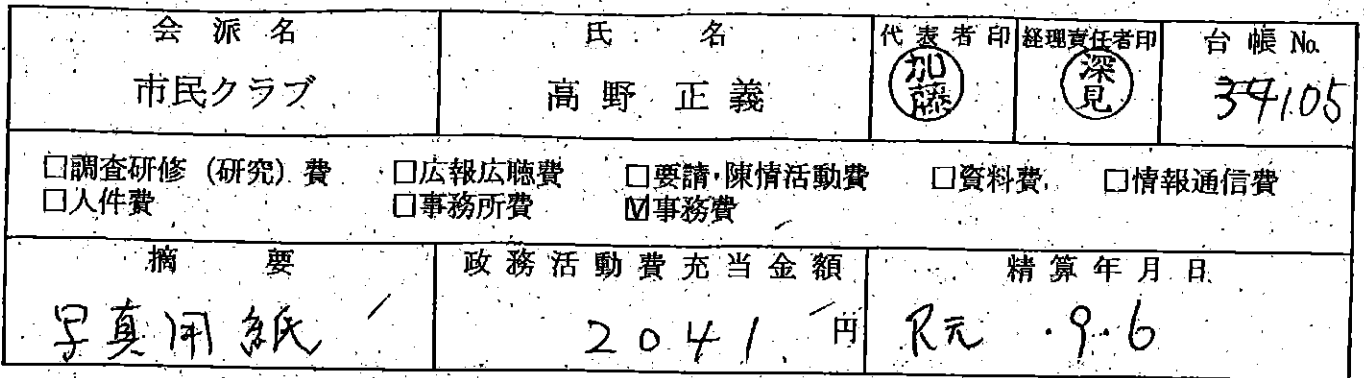 会派名 氏名 代表者印 経理責任者印 台帳No.
市民クラブ 高野 正義 加藤 深見 34105
□調査研修(研究)費 □広報広聴費 □要請・陳情活動費 □資料費 □情報通信費
□人件費 □事務所費 ☑事務費
摘要 政務活動費充当金額 精算年月日
写真用紙 2041円 R元.9.6